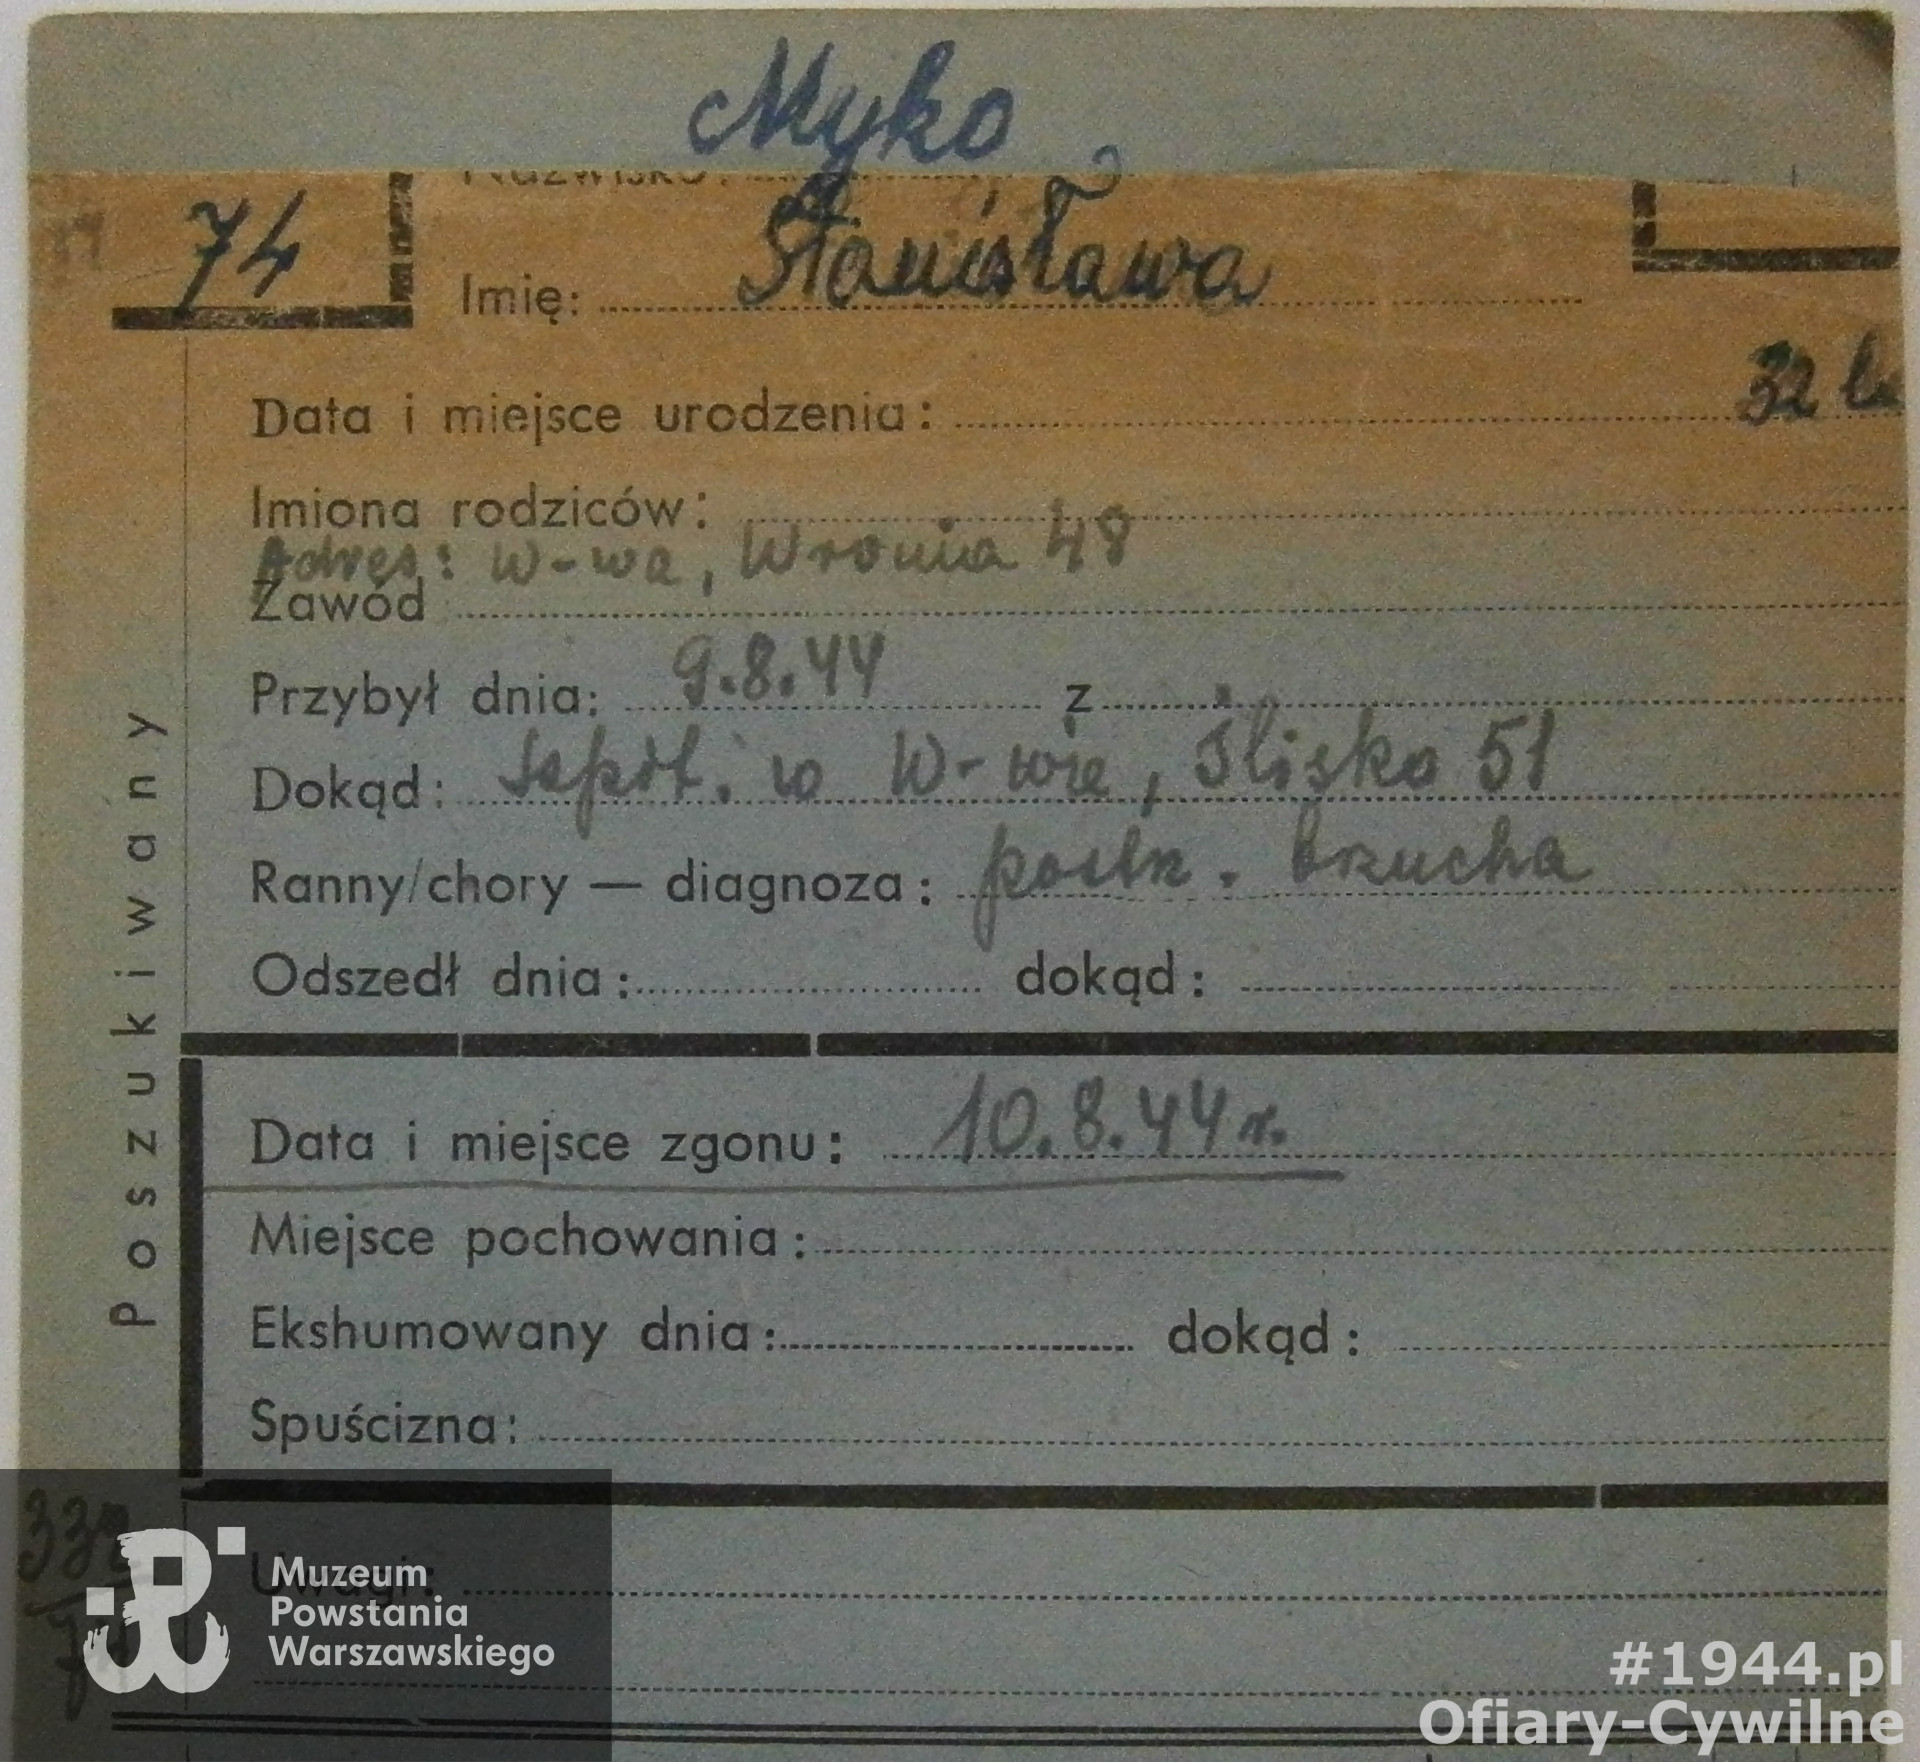 Myko
Nazwisko:
74
Imię: Stanisława
32
Data i miejsce urodzenia:
Imiona rodziców:
Adres: W-wa, Wronia 48
Zawód
Przybył dnia: 9.8.44 z
Dokąd: w W-wie, Śliska 51
Ranny/chory — diagnoza: postrz. brzucha
Odszedł dnia: dokąd:
Poszukiwany
Data i miejsce zgonu: 10.8.44 r.
Miejsce pochowania:
Ekshumowany dnia: dokąd:
Spuścizna:
Uwagi:
Muzeum
Powstania
Warszawskiego
#1944.pl
Ofiary-Cywilne